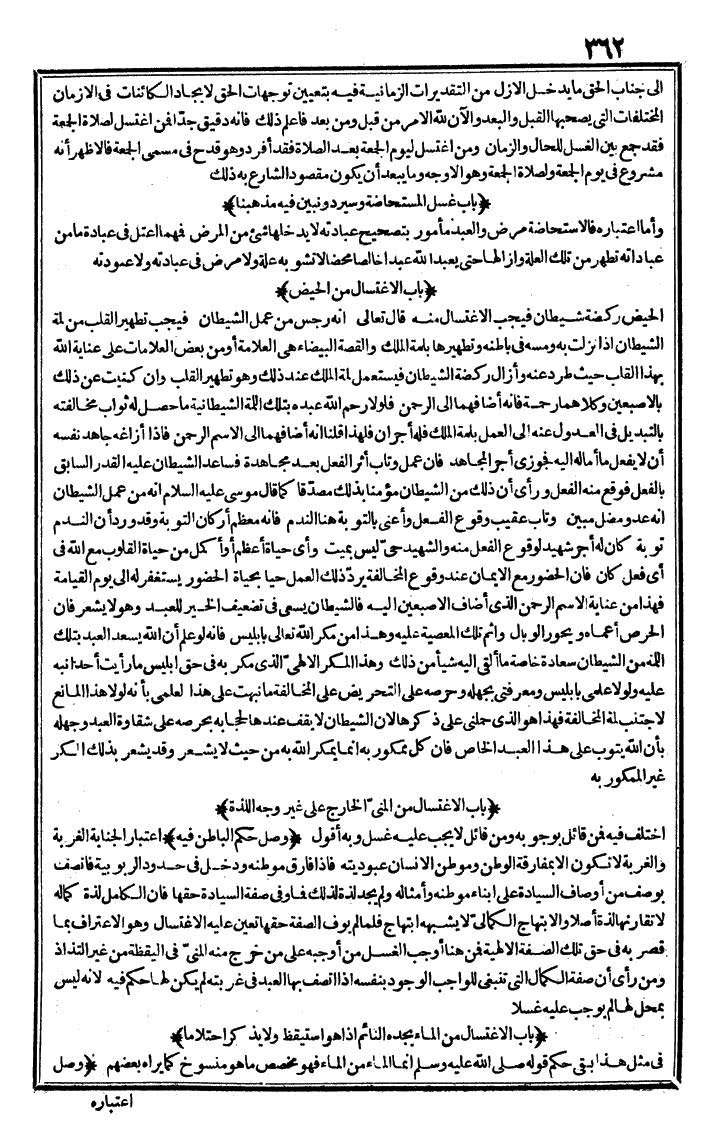 ٣٦٢
الى جناب الحق ما يدخل الازل من التقديرات الزمانية فيه بتعيين توجهات الحق لايجاد الكائنات فى الازمان
المختلفات التى يصحبها القبل والبعد والآن لله الامر من قبل ومن بعد فاعلم ذلك فانه دقيق جدا فمن اغتسل لصلاة الجمعة
فقد جمع بين الغسل للحال والزمان ومن اغتسل ليوم الجمعة بعد الصلاة فقد أفرد وهو قدح فى مسمى الجمعة فالاظهر أنه
مشروع فى يوم الجمعة ولصلاة الجمعة وهو الاوجه وما يبعد أن يكون مقصود الشارع به ذلك
﴿باب غسل المستحاضة وسيرد ونبين فيه مذهبنا﴾
وأما اعتباره فالاستحاضة مرض والعبد مأمور بتصحيح عبادته لا يدخلها شئ من المرض فهما اعتل فى عبادة ما من
عباداته تطهر من تلك العلة وازالها حتى يعبد الله عبدا خالصا محضا لا تشوبه علة ولا مرض فى عبادته ولا عبودته
﴿باب الاغتسال من الحيض﴾
الحيض ركضة شيطان فيجب الاغتسال منه قال تعالى انه رجس من عمل الشيطان فيجب تطهير القلب من لمة
الشيطان اذا نزلت به ومسه فى باطنه وتطهيرها بلمة الملك والقصة البيضاء هى العلامة أو من بعض العلامات على عناية الله
بهذا القلب حيث طرد عنه وأزال ركضة الشيطان فيستعمل لمة الملك عند ذلك وهو تطهير القلب وان كنيت عن ذلك
بالاصبعين وكلاهما رحمة فانه أضافهما الى الرحمن فلولا رحم الله عبده بتلك اللمة الشيطانية ما حصل له ثواب مخالفته
بالتبديل فى العدول عنه الى العمل بلمة الملك فله أجران فلهذا قلنا انه أضافهما الى الاسم الرحمن فاذا أزاغه جاهد نفسه
أن لا يفعل ما أماله اليه فجوزى أجر المجاهد فان عمل وتاب أثر الفعل بعد مجاهدة فساعد الشيطان عليه القدر السابق
بالفعل فوقع منه الفعل و رأى أن ذلك من الشيطان مؤمنا بذلك مصدقا كما قال موسى عليه السلام انه من عمل الشيطان
انه عدو مضل مبين وتاب عقيب وقوع الفعل وأعنى بالتوبة هنا الندم فانه معظم أركان التوبة وقد ورد أن الندم
توبة كان له أجر شهيد لوقوع الفعل منه والشهيد حىّ ليس بميت وأى حياة أعظم أو أكمل من حياة القلوب مع الله فى
أى فعل كان فان الحضور مع الايمان عند وقوع المخالفة يرد ذلك العمل حيا بحياة الحضور يستغفر له الى يوم القيامة
فهذا من عناية الاسم الرحمن الذى أضاف الاصبعين اليه فالشيطان يسعى فى تضعيف الخير للعبد وهو لا يشعر فان
الحرص أعماه ويحور الوبال واثم تلك المعصية عليه وهذا من مكر الله تعالى بابليس فانه لو علم أن الله يسعد العبد بتلك
اللمة من الشيطان سعادة خاصة ما ألقى اليه شيأ من ذلك وهذا المكر الالهىّ الذى مكر به فى حق ابليس ما رأيت أحدا نبه
عليه ولولا علمى بابليس ومعرفتى بجهله وحرصه على التحريض على المخالفة ما نبهت على هذا لعلمى بأنه لولا هذا المانع
لاجتنب لمة المخالفة فهذا هو الذى حملنى على ذكرها لان الشيطان لا يقف عندها لحجابه بحرصه على شقاوة العبد وجهله
بأن الله يتوب على هذا العبد الخاص فان كل ممكور به انما يمكر الله به من حيث لا يشعر وقد يشعر بذلك المكر
غير الممكور به
﴿باب الاغتسال من المنىّ الخارج على غير وجه اللذة﴾
اختلف فيه فمن قائل بوجوبه ومن قائل لا يجب عليه غسل وبه أقول ﴿وصل حكم الباطن فيه﴾ اعتبار الجنابة الغربة
والغربة لا تكون الا بمفارقة الوطن وموطن الانسان عبوديته فاذا فارق موطنه ودخل فى حدود الربوبية فاتصف
بوصف من أوصاف السيادة على ابناء موطنه وأمثاله ولم يجد لذة لذلك فما وفى صفة السيادة حقها فان الكامل لذة كماله
لا تقارنها لذة أصلا والابتهاج الكمالىّ لا يشبهه ابتهاج فلما لم يوف الصفة حقها تعين عليه الاغتسال وهو الاعتراف بما
قصر به فى حق تلك الصفة الالهية فمن هنا أوجب الغسل من أوجبه على من خرج منه المنىّ فى اليقظة من غير التذاذ
ومن رأى أن صفة الكمال التى تنبغى للواجب الوجود بنفسه اذا اتصف بها العبد فى غربته لم يكن لها حكم فيه لانه ليس
بمحل لها لم يوجب عليه غسلا
﴿باب الاغتسال من الماء يجده النائم اذا هو استيقظ ولا يذكر احتلاما﴾
فى مثل هذا بقى حكم قوله صلى الله عليه وسلم انما الماء من الماء فهو مخصص ما هو منسوخ كما يراه بعضهم ﴿وصل
اعتباره